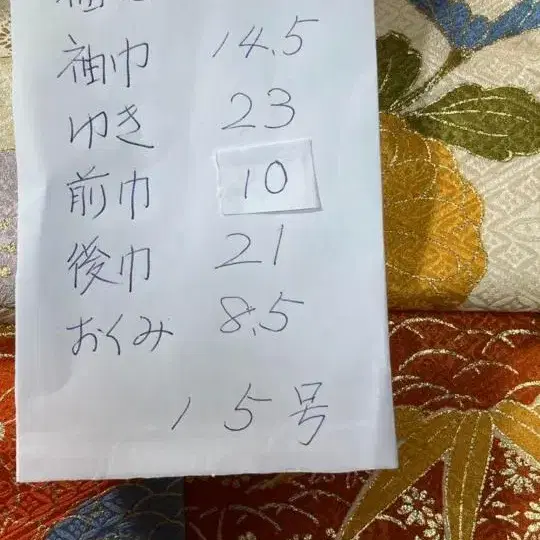 袖巾 14.5
ゆき 23
前巾 10
後巾 21
おくみ 8.5
15号